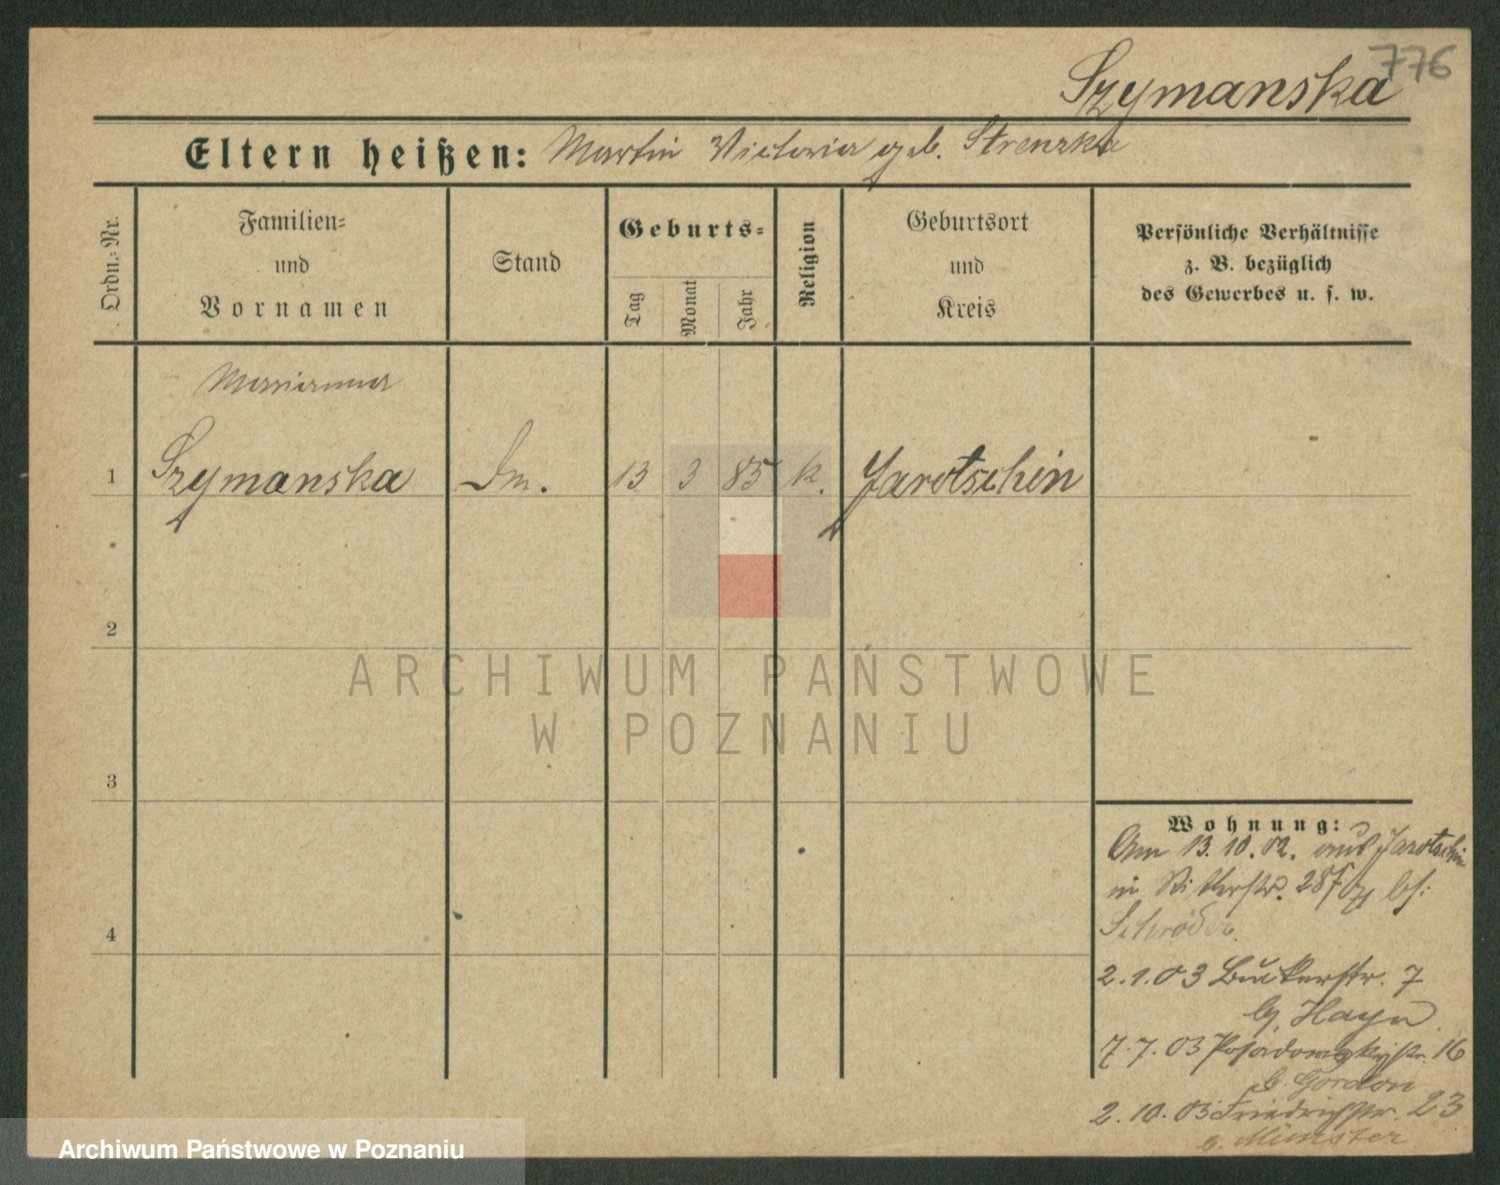 776
Szymanska
Eltern heißen: Martin Victoria geb. Strenzka
Ordn.-Nr.
Familien-
und
Vornamen
Stand
Geburts-
Tag
Monat
Jahr
Religion
Geburtsort
und
Kreis
Persönliche Verhältnisse
z. B. bezüglich
des Gewerbes u. s. w.
Marianna
1 Szymanska Dm. 13 3 85 k. Jarotschin
2
3
4
ARCHIWUM PAŃSTWOWE
W POZNANIU
Wohnung:
Am 13.10.02. aus Jarotschin
in Ritterstr. 28 bei
Schröder.
2.1.03 Bukerstr. 7
b. Hayn
7.7.03 Posadowskystr. 16
b. Gordon
2.10.03 Friedrichstr. 23
b. Münster
Archiwum Państwowe w Poznaniu